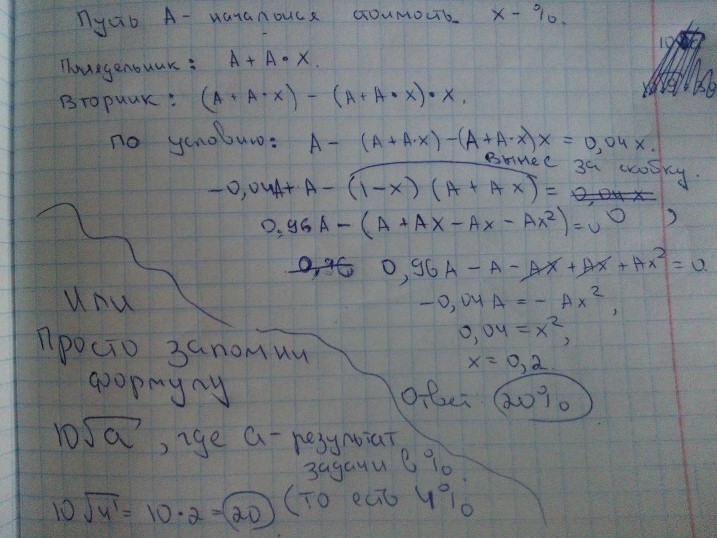 Пусть A - начальная стоимость x - %.
Понедельник: A + A • x.
Вторник: (A + A • x) - (A + A • x) • x.
По условию: A - (A + A•x) - (A + A•x)x = 0,04x.
вынес за скобку.
-0,04A + A - (1-x) (A + Ax) = 0,04x 0,
0,96A - (A + Ax - Ax - Ax²) = 0
0,96 0,96A - A - Ax + Ax + Ax² = 0
-0,04A = - Ax²,
0,04 = x²,
x = 0,2.
Ответ 20%
Или
Просто запомни
формулу
10√a, где a - результат
задачи в %.
10√4 = 10•2 = 20 (то есть 4%